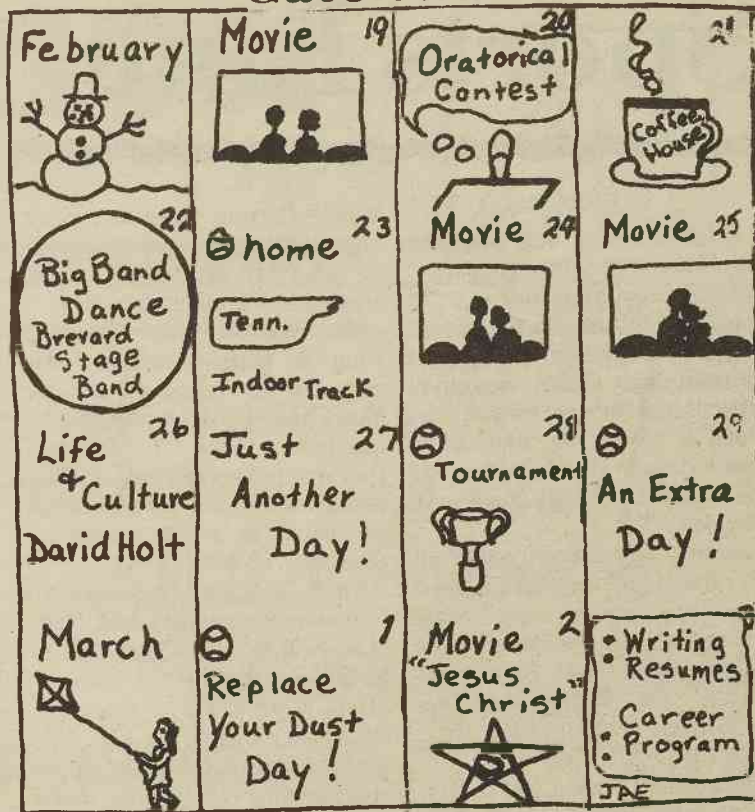 February
Movie 19
20
Oratorical
Contest
21
Coffee
House
22
Big Band
Dance
Brevard
Stage
Band
23
home
Tenn.
Indoor Track
Movie 24
Movie 25
26
Life
& Culture
David Holt
27
Just
Another
Day!
28
Tournament
29
An Extra
Day!
March
1
Replace
Your Dust
Day!
Movie 2
"Jesus
Christ"
Writing
Resumes
Career
Program
JAE